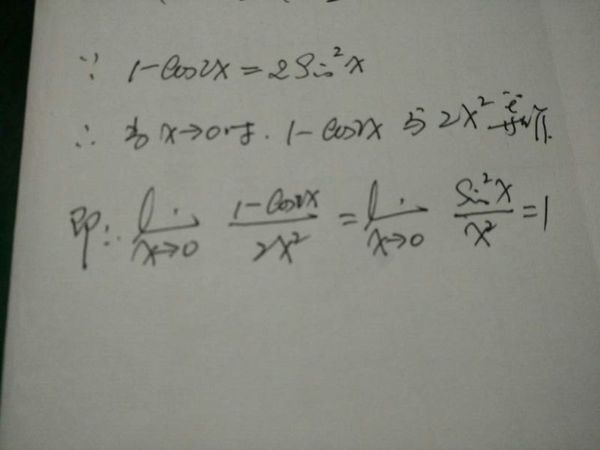 ∵ 1-cos2x=2sin²x
∴ 当x→0时. 1-cos2x与2x²等价.
即: lim x→0 (1-cos2x)/(2x²) = lim x→0 (sin²x)/(x²) = 1